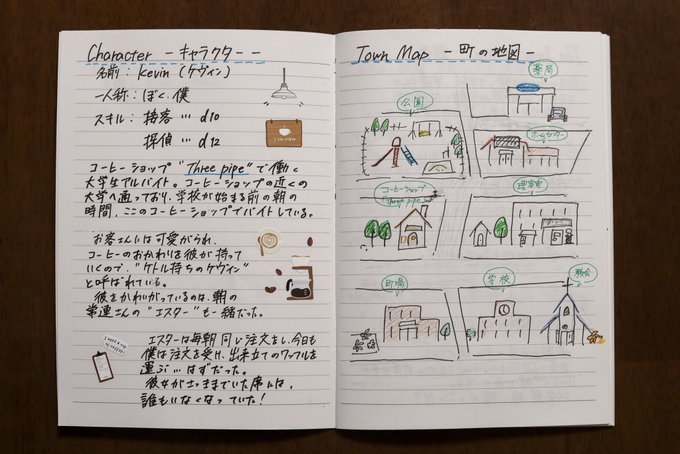 Character -キャラクター-
名前：Kevin (ケヴィン)
一人称：ぼく、僕
スキル：接客…d10
探偵…d12
コーヒーショップ"Three pipe"で働く
大学生アルバイト。コーヒーショップの近くの
大学へ通っており、学校が始まる前の朝の
時間、ここのコーヒーショップでバイトしている。
お客さんには可愛がられ、
コーヒーのおかわりを彼が持って
いくので、"ケトル持ちのケヴィン"
と呼ばれている。
彼をかわいがっているのは、朝の
常連さんの"エスター"も一緒だった。
エスターは毎朝同じ注文をし、今日も
僕は注文を受け、出来立てのワッフルを
運ぶ…はずだった。
彼女がさっきまでいた席には、
誰もいなくなっていた！
Town Map -町の地図-
薬局
公園
ホームセンター
コーヒーショップ
Three pipe
理容室
役場
学校
教会